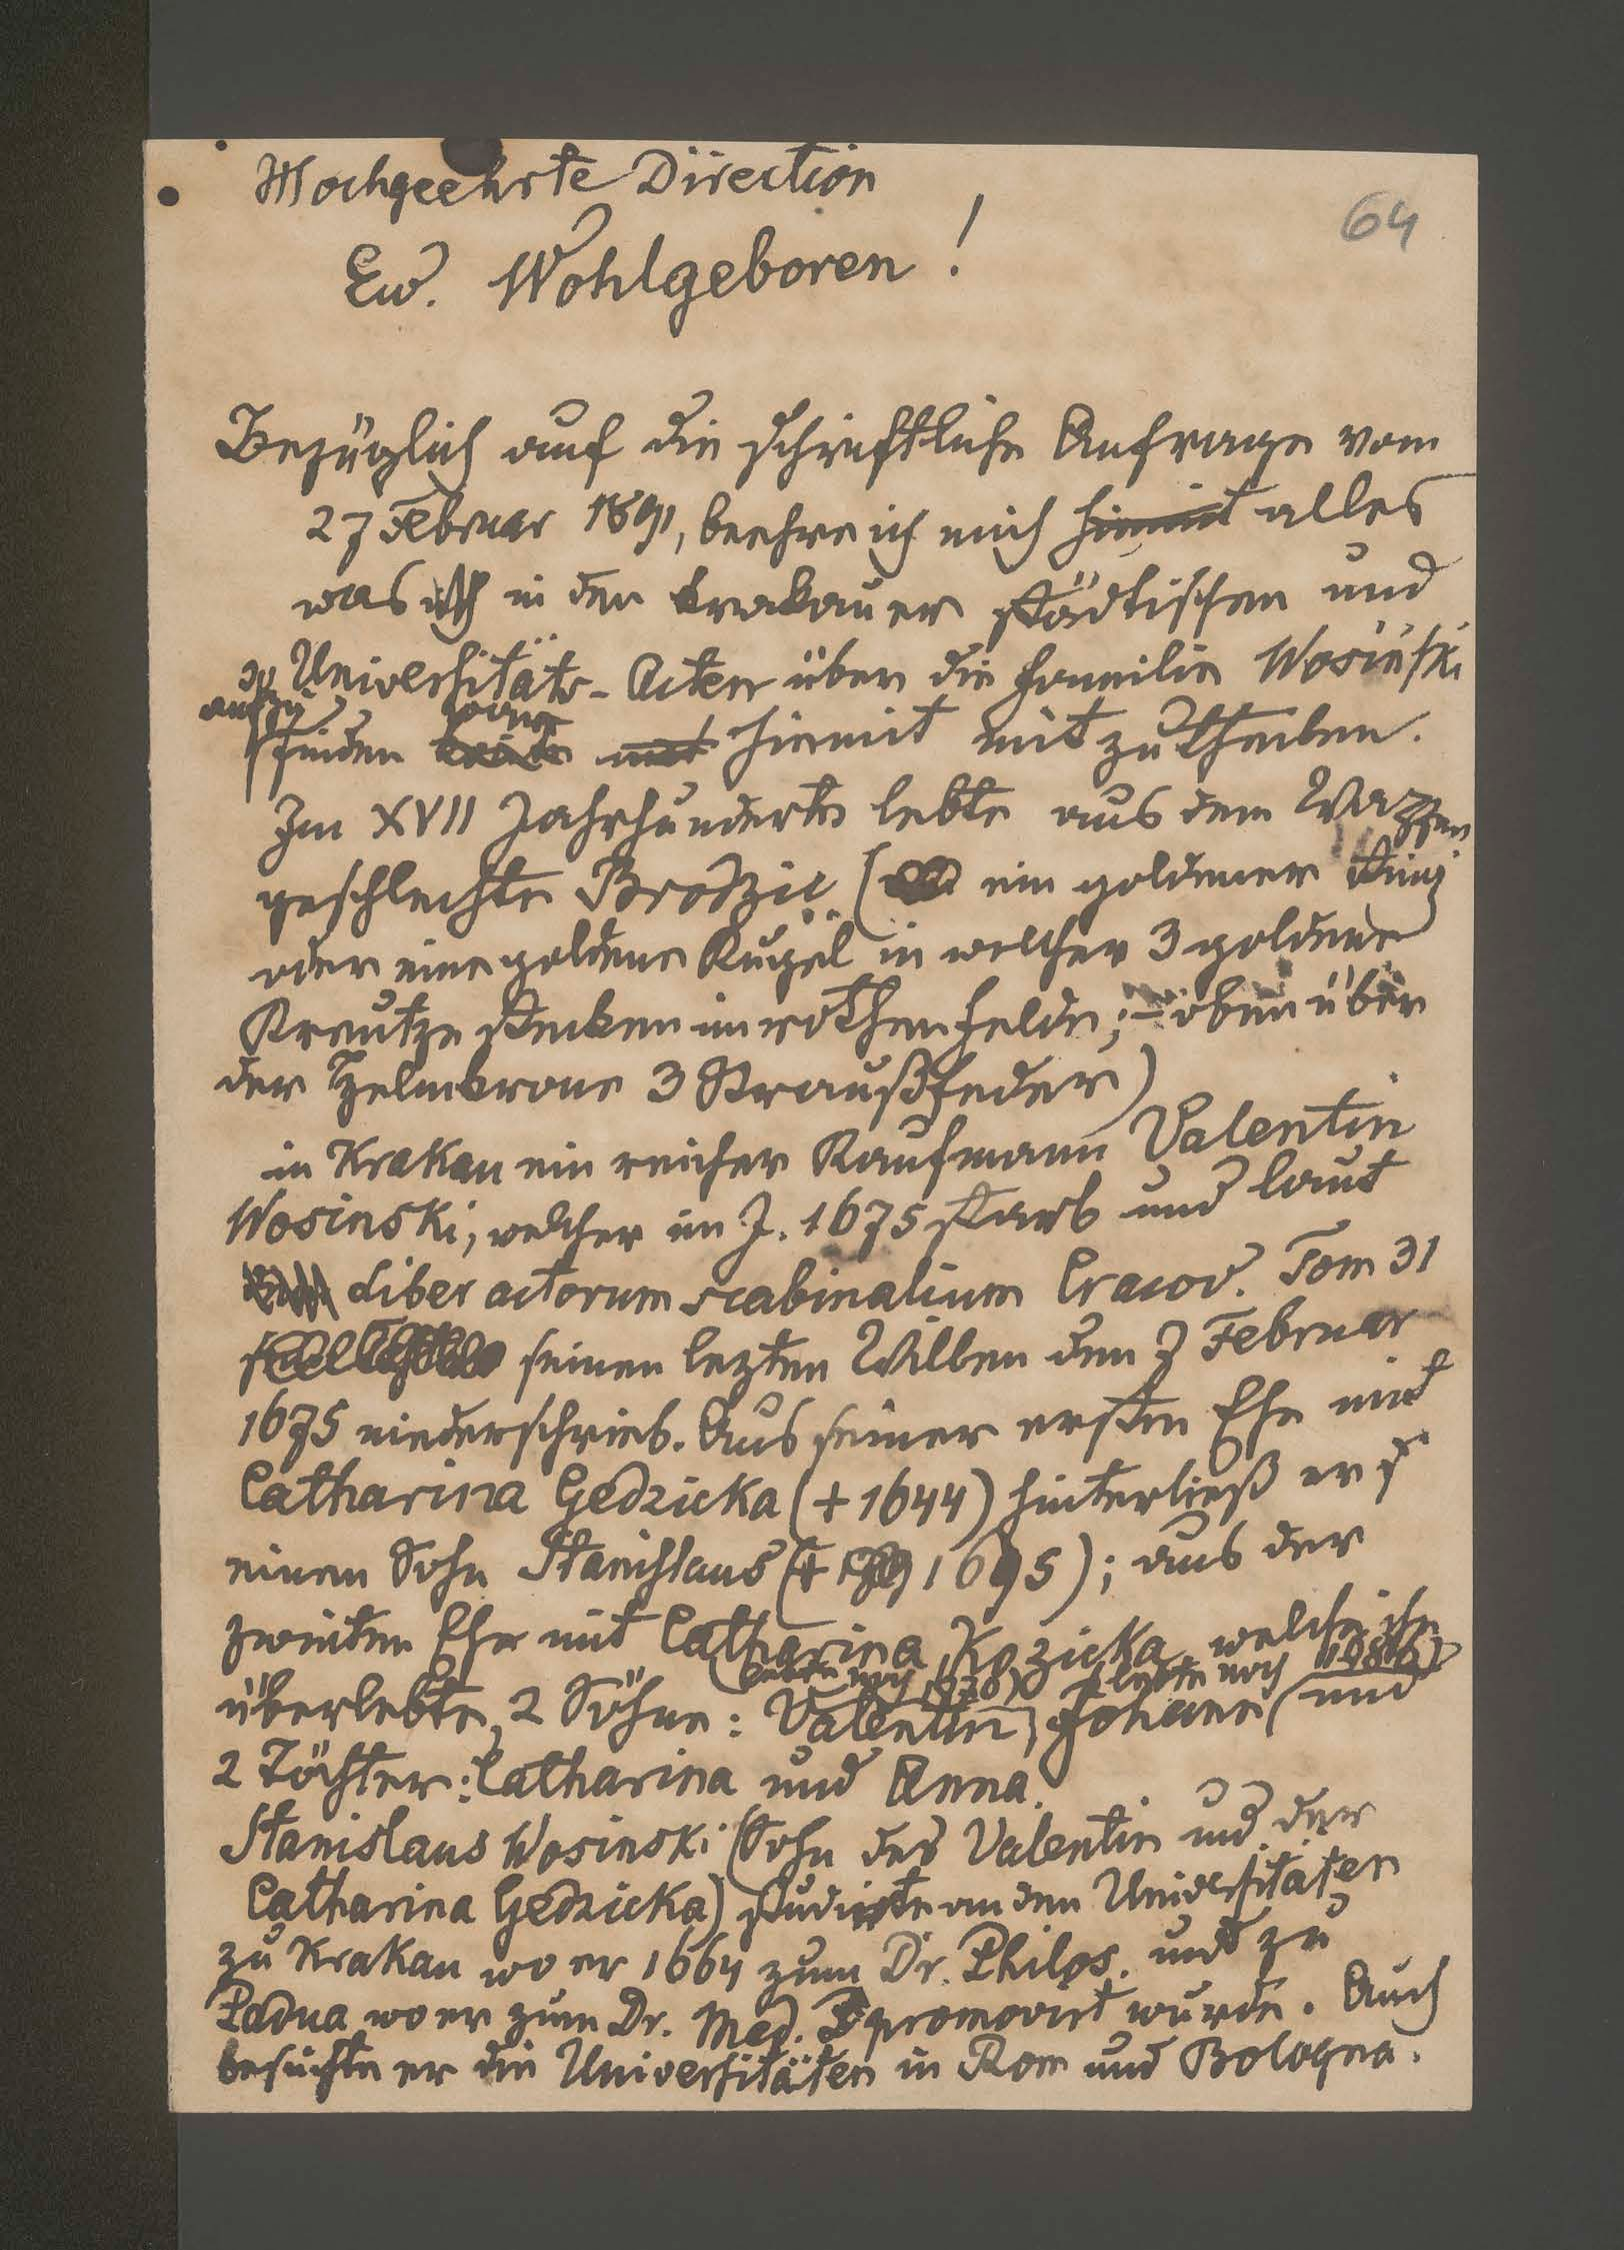 Hochgeehrte Direction
64
Ew. Wohlgeboren!
Bezüglich auf die schriftliche Anfrage vom
27 Februar 1891, beehre ich mich hiemit alles
was ich in den krakauer städtischen und
Universitäts-Acten über die Familie Wosiński
aufzu
finden hiemit mit zu theilen.
Im XVII Jahrhunderte lebte aus dem Wappen
geschlechte Brodzic (ein goldener Ring
oder eine goldene Kugel in welcher 3 goldene
Kreutze stecken im rothen Felde; - oben über
der Helmkrone 3 Straußfeder)
in Krakau ein reicher Kaufmann Valentin
Wosinski, welcher im J. 1675 starb und laut
Liber actorum scabinalium Cracov. Tom 31
seinen lezten Willen den 7 Februar
1675 niederschrieb. Aus seiner ersten Ehe mit
Catharina Gedzicka (+ 1644) hinterließ er
einen Sohn Stanislaus (+ 1695); aus der
zweiten Ehe mit Catharina Kozicka welche ihn
(lebte noch 1678) lebte noch
überlebte, 2 Söhne: Valentin, Johann (und
2 Töchter: Catharina und Anna.
Stanislaus Wosinski (Sohn des Valentin und der
Catharina Gedzicka) studirte an den Universitäten
zu Krakau wo er 1664 zum Dr. Philos. und zu
Padua wo er zum Dr. Med. promovirt wurde. Auch
besuchte er die Universitäten in Rom und Bologna.